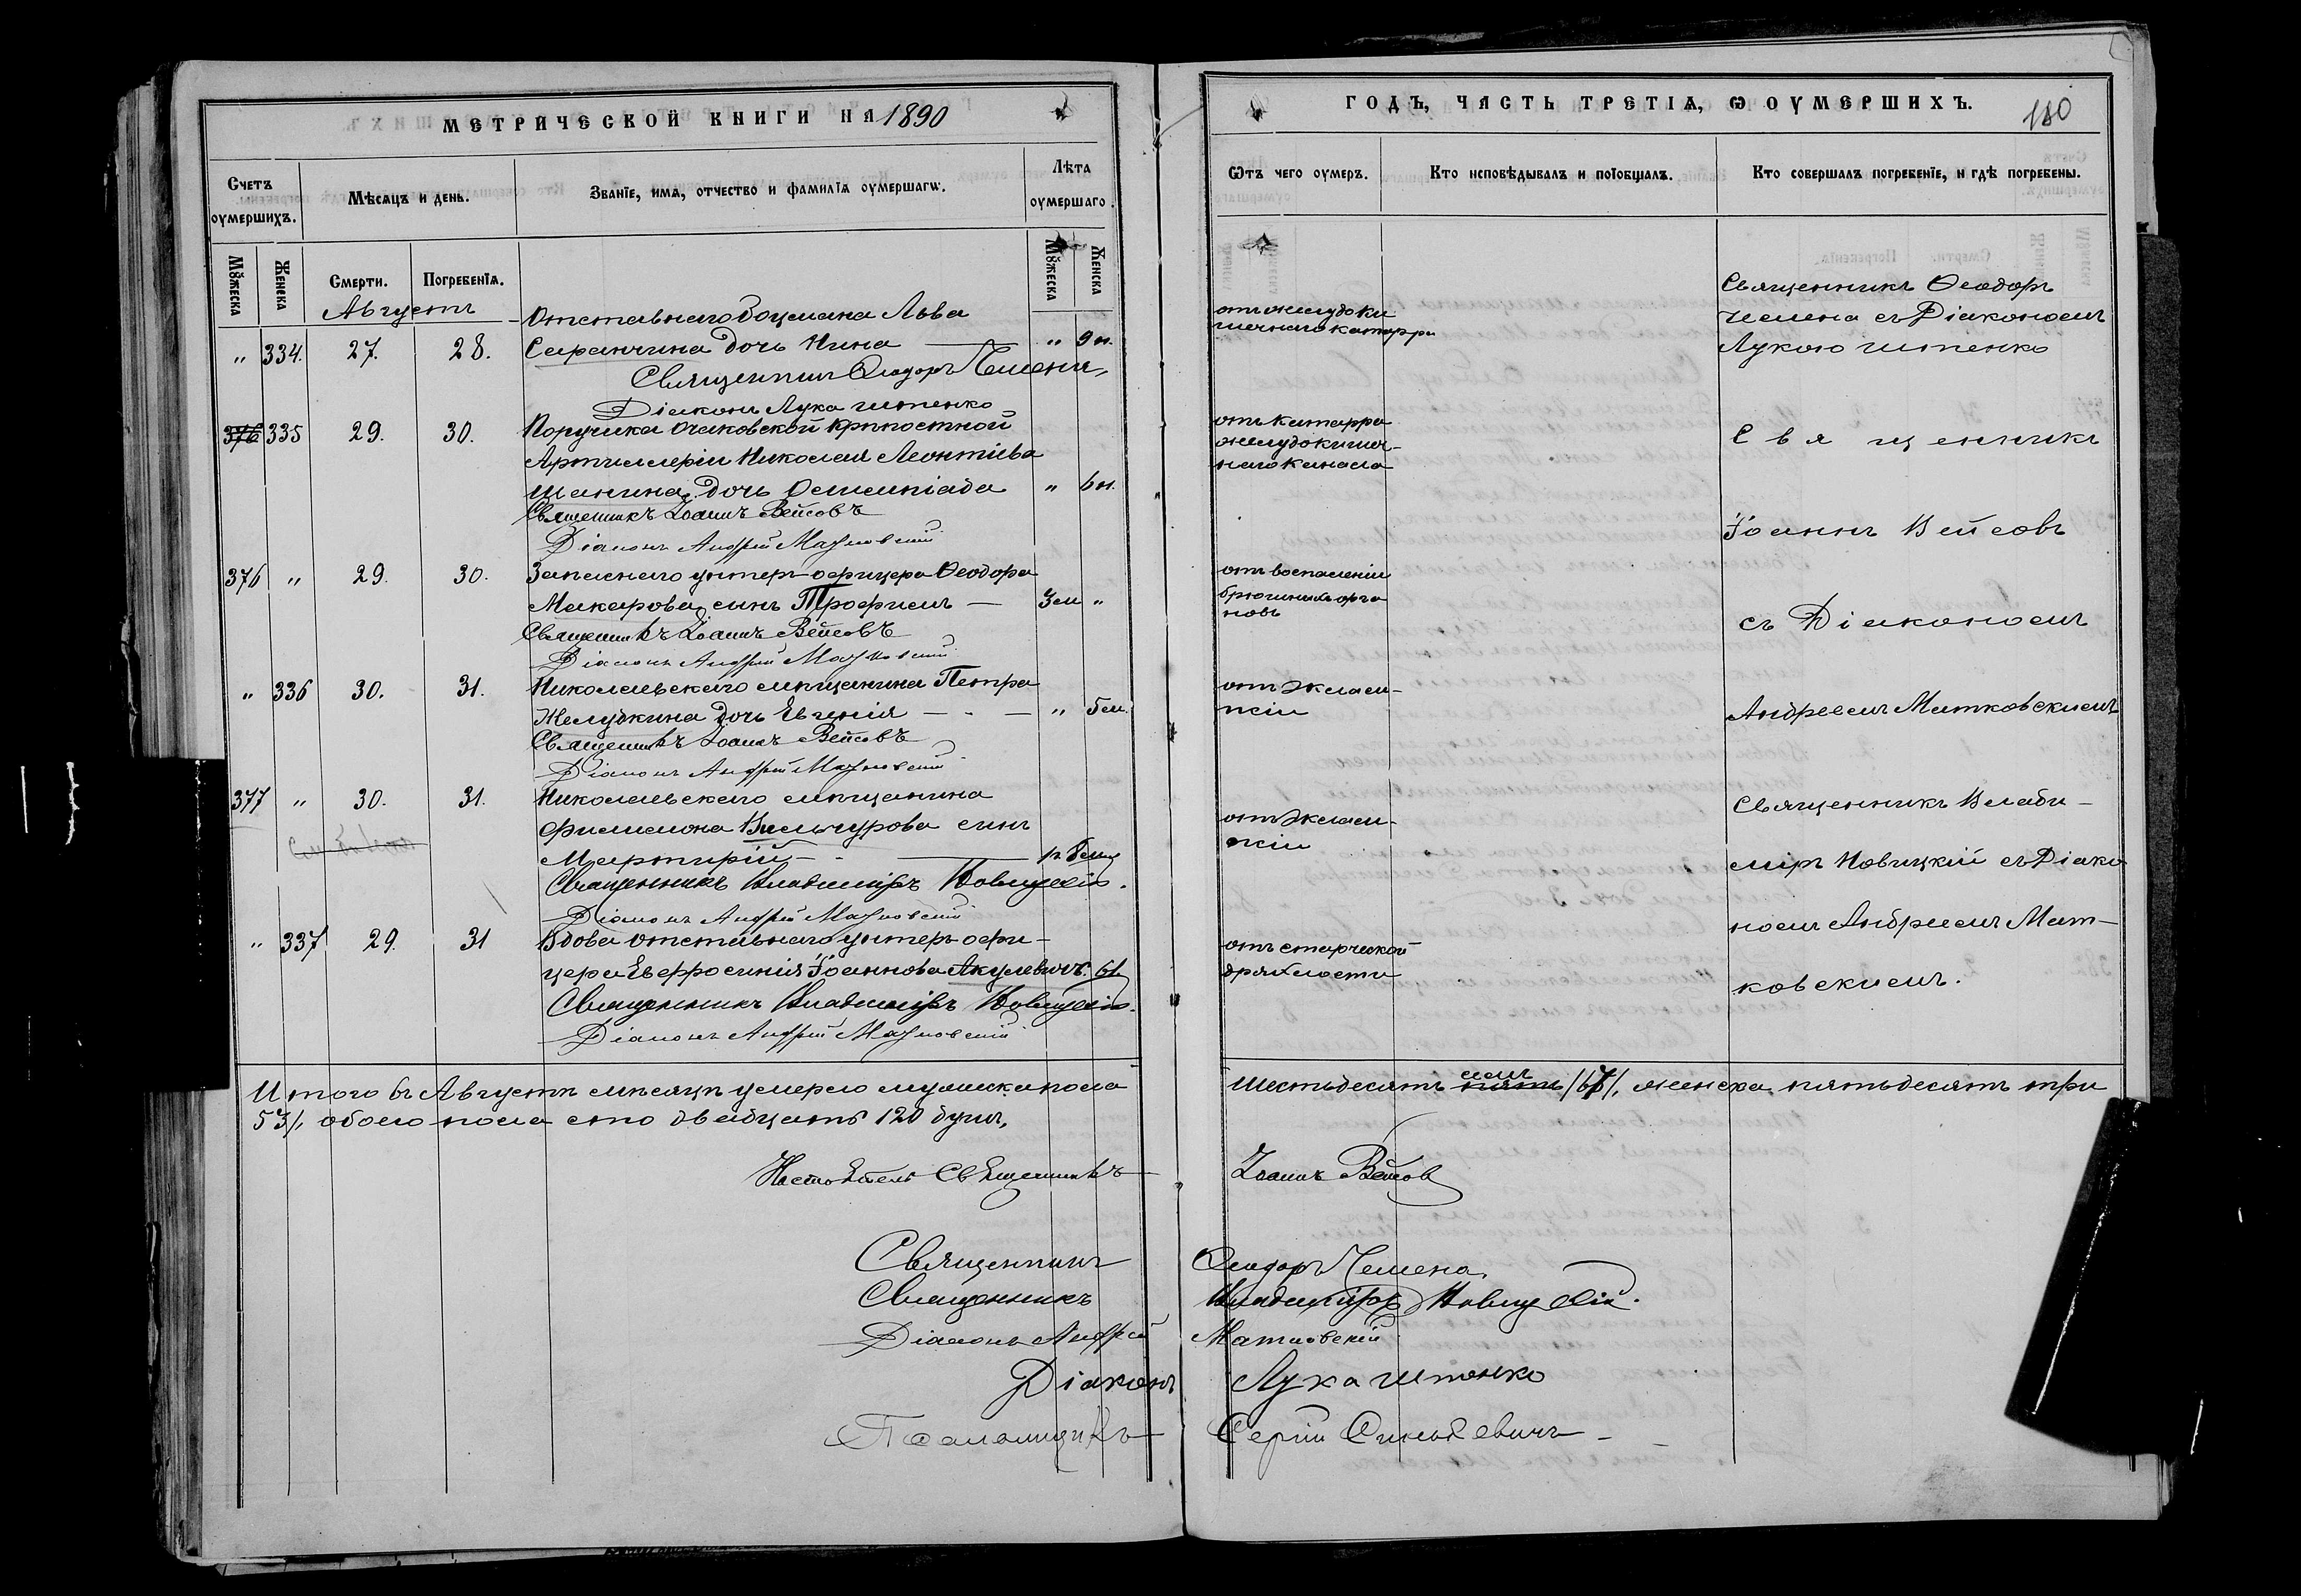 МЕТРИЧЕСКОЙ КНИГИ НА 1890
Счетъ оумершихъ.
Мѣсяцъ и день.
Званїе, имя, отчество и фамилїя оумершагѡ.
Лѣта оумершаго.
Мꙋжеска
Женска
Смерти.
Погребенїя.
Мꙋжеска
Женска
Августъ
Отставнаго боцмана Льва
" 334. 27. 28. Саранчина дочь Нина — " 9 м.
Священникъ Ѳеодоръ Чемена,
Діаконъ Лука Штенко
376 335 29. 30. Поручика Очаковской крѣпостной
Артиллеріи Николая Леонтіева
Шанина дочь Олимпіада " 6 м.
Священникъ Іоаннъ Вейсовъ
Діаконъ Андрей Матковскій
376 " 29. 30. Запаснаго унтеръ-офицера Ѳеодора
Макарова, сынъ Трофимъ — 3 м "
Священникъ Іоаннъ Вейсовъ
Діаконъ Андрей Матковскій
" 336 30. 31. Николаевскаго мѣщанина Петра
Желудкина дочь Евгенія — - — " 5 м.
Священникъ Іоаннъ Вейсовъ
Діаконъ Андрей Матковскій
377 " 30. 31. Николаевскаго мѣщанина
Филимона Вильчурова сынъ
Мартирій —
Священникъ Владиміръ Новицкій.
Діаконъ Андрей Матковскій
" 337 29. 31 Вдова отставнаго унтеръ-офи-
цера Евфросинія Іоаннова Акулевичъ. 61
Священникъ Владиміръ Новицкій.
Діаконъ Андрей Матковскій
Итого въ Августѣ мѣсяцѣ умерло мужеска пола
53/, обоего пола сто двадцать 120 душъ,
Настоятель Священникъ
Священникъ
Священникъ
Діаконъ Андрей
Діаконъ
Псаломщикъ
ГОДЪ, ЧАСТЬ ТРЕТЇѦ, Ѡ ОУМЕРШИХЪ.
180
Ѿтъ чего оумеръ.
Кто исповѣдывалъ и прїобщалъ.
Кто совершалъ погребенїе, и гдѣ погребены.
отъ желудоки
шечнаго катарра
Священникъ Ѳеодоръ
Чемена съ Діакономъ
Лукою Штенко
отъ катарра
желудокишеч-
наго канала
Священникъ
Іоаннъ Вейсовъ
отъ воспаленія
брюшныхъ орга
новъ
съ Діакономъ
отъ Эклам-
псіи
Андреемъ Матковскимъ
отъ Эклам-
псіи
Священникъ Влади-
міръ Новицкій съ Діако
номъ Андреемъ Мат-
ковскимъ.
отъ старческой
дряхлости
шестьдесятъ семь пять /67/, женска пятьдесятъ три
Іоаннъ Вейсовъ
Ѳеодоръ Чемена,
Владиміръ Новицкій.
Матковскій
Лука Штенко
Сергій